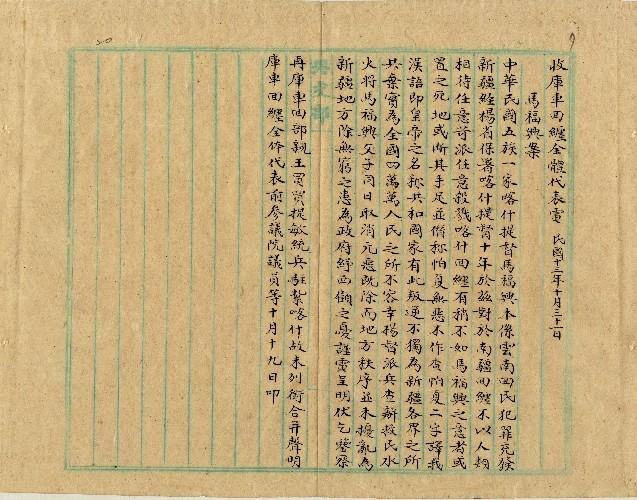 收庫車回纏全體代表電 民國十三年十月三十一日
馬福興案
中華民國五族一家喀什提督馬福興本係雲南回民犯罪充發
新疆經楊省保署喀什提督十年於茲對於南疆回纏不以人類
相待任意苛派任意殺戮喀什回纏有稍不如馬福興之意者或
置之死地或斷其手足並僭稱怕夏無惡不作查怕夏二字譯我
漢語即皇帝之名稱共和國家有此叛逆不獨為新疆各界之所
共棄實為全國四萬萬人民之所不容幸楊督派兵查辦救民水
火將馬福興父子同日取消元惡既除而地方秩序並未擾亂為
新疆地方除無窮之患為政府紓西顧之憂謹電呈明伏乞鑒察
再庫車回部親王買買提敏統兵駐紮喀什故未列銜合并聲明
庫車回纏全体代表前參議院議員等十月十九日叩
外交部